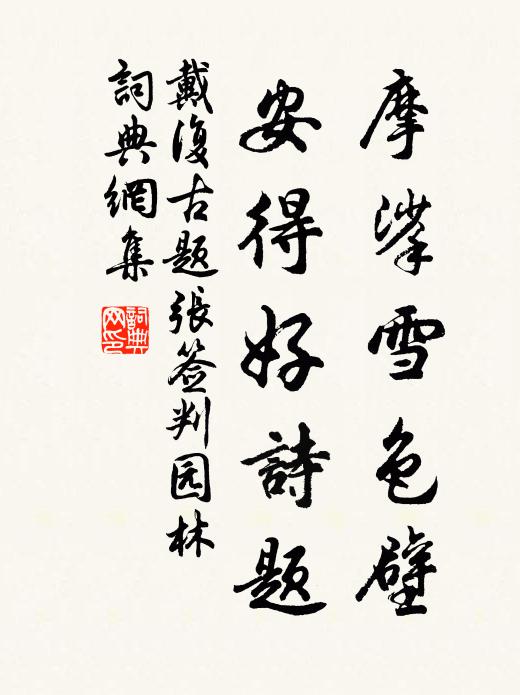 摩挲雪色壁
安得好詩題
戴復古題張签判园林
詞典網集
詞典网印